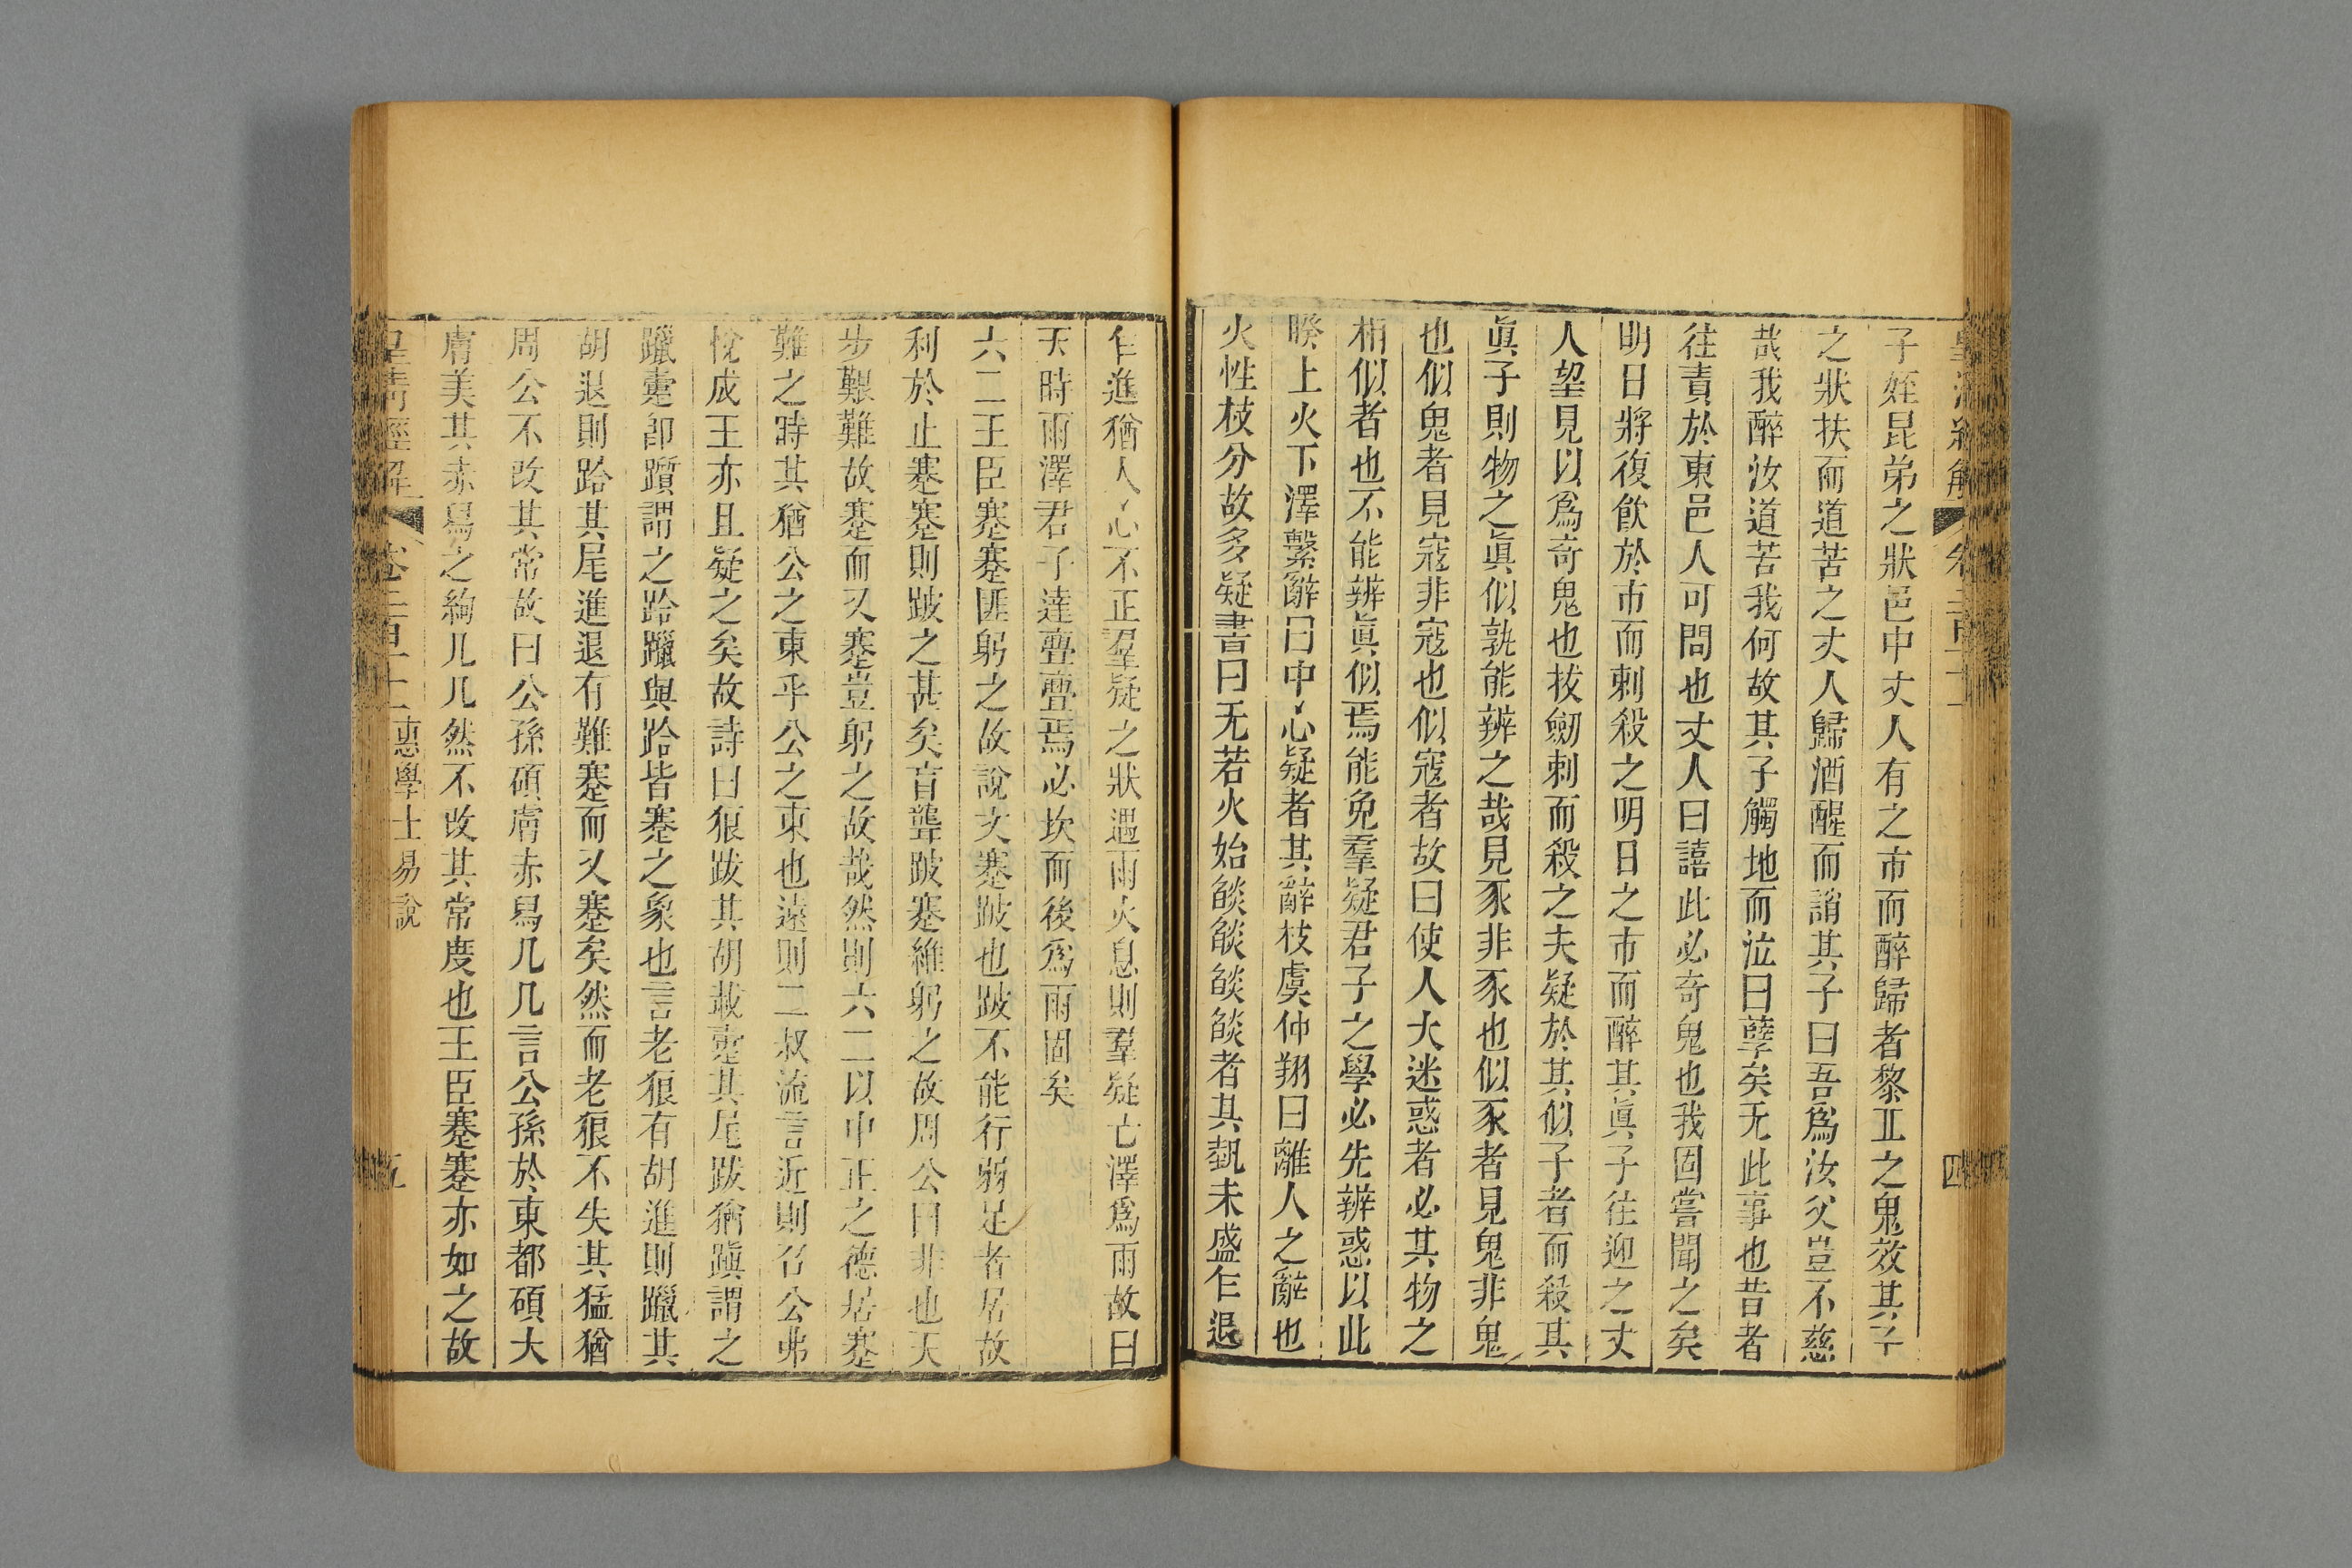 皇清經解 卷二百十一 四
子姪昆弟之狀邑中丈人有之市而醉歸者黎丘之鬼效其子
之狀扶而道苦之丈人歸酒醒而誚其子曰吾爲汝父豈不慈
哉我醉汝道苦我何故其子觸地而泣曰孽矣无此事也昔者
往責於東邑人可問也丈人曰譆此必奇鬼也我固嘗聞之矣
明日將復飲於市而刺殺之明日之市而醉其眞子往迎之丈
人望見以爲奇鬼也拔劒刺而殺之夫疑於其似子者而殺其
眞子則物之眞似孰能辨之哉見豕非豕也似豕者見鬼非鬼
也似鬼者見寇非寇也似寇者故曰使人大迷惑者必其物之
相似者也不能辨眞似焉能免羣疑君子之學必先辨惑以此
睽上火下澤繫辭曰中心疑者其辭枝虞仲翔曰離人之辭也
火性枝分故多疑書曰无若火始燄燄燄燄者其埶未盛乍退
乍進猶人心不正羣疑之狀遇雨火息則羣疑亡澤爲雨故曰
天時雨澤君子達亹亹焉必坎而後爲雨固矣
六二王臣蹇蹇匪躬之故說文蹇跛也跛不能行弱足者居故
利於止蹇蹇則跛之甚矣盲聾跛蹇維躬之故周公曰非也天
步艱難故蹇而又蹇豈躬之故哉然則六二以中正之德居蹇
難之時其猶公之東乎公之東也遠則二叔流言近則召公弗
悅成王亦且疑之矣故詩曰狼跋其胡載疐其尾跋猶蹎謂之
躐疐卽躓謂之跲躐與跲皆蹇之象也言老狼有胡進則躐其
胡退則跲其尾進退有難蹇而又蹇矣然而老狼不失其猛猶
周公不改其常故曰公孫碩膚赤舄几几言公孫於東都碩大
膚美其赤舄之絇几几然不改其常度也王臣蹇蹇亦如之故
皇淸經解 卷二百十一 惠學士易說 五